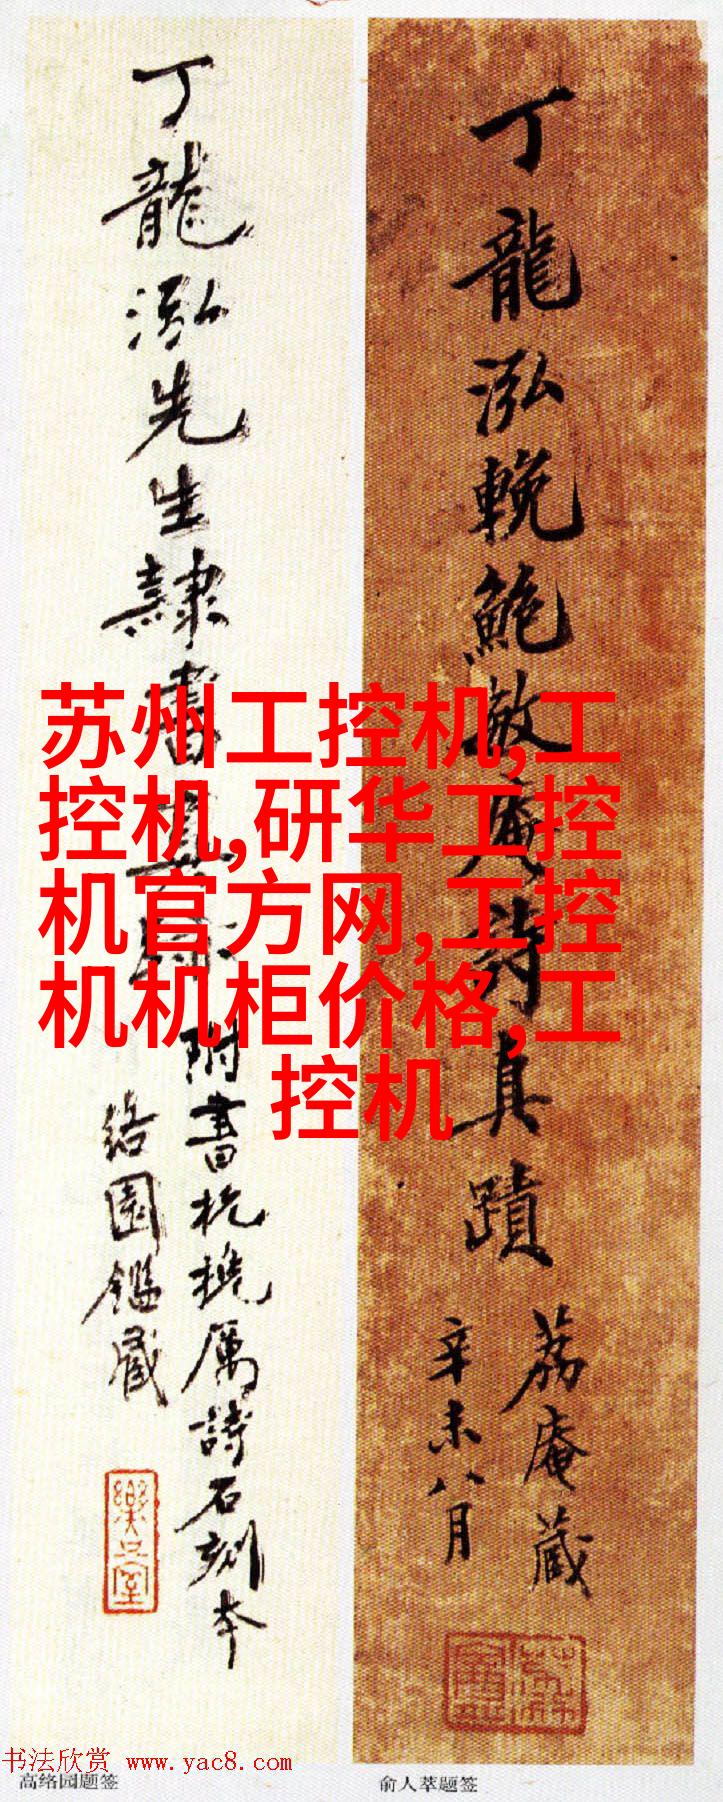 丁龍泓輓鮑敘庵詩真蹟
荔庵藏
辛未八月
丁龍泓先生隸書真跡
附書杭堇浦厲詩石刻本
络園鑑藏
苏州工控机,工
控机,研华工控
机官方网,工控
机机柜价格,工
控机
樂只室
书法欣赏 www.yac8.com
高络园题签
俞人萃题签